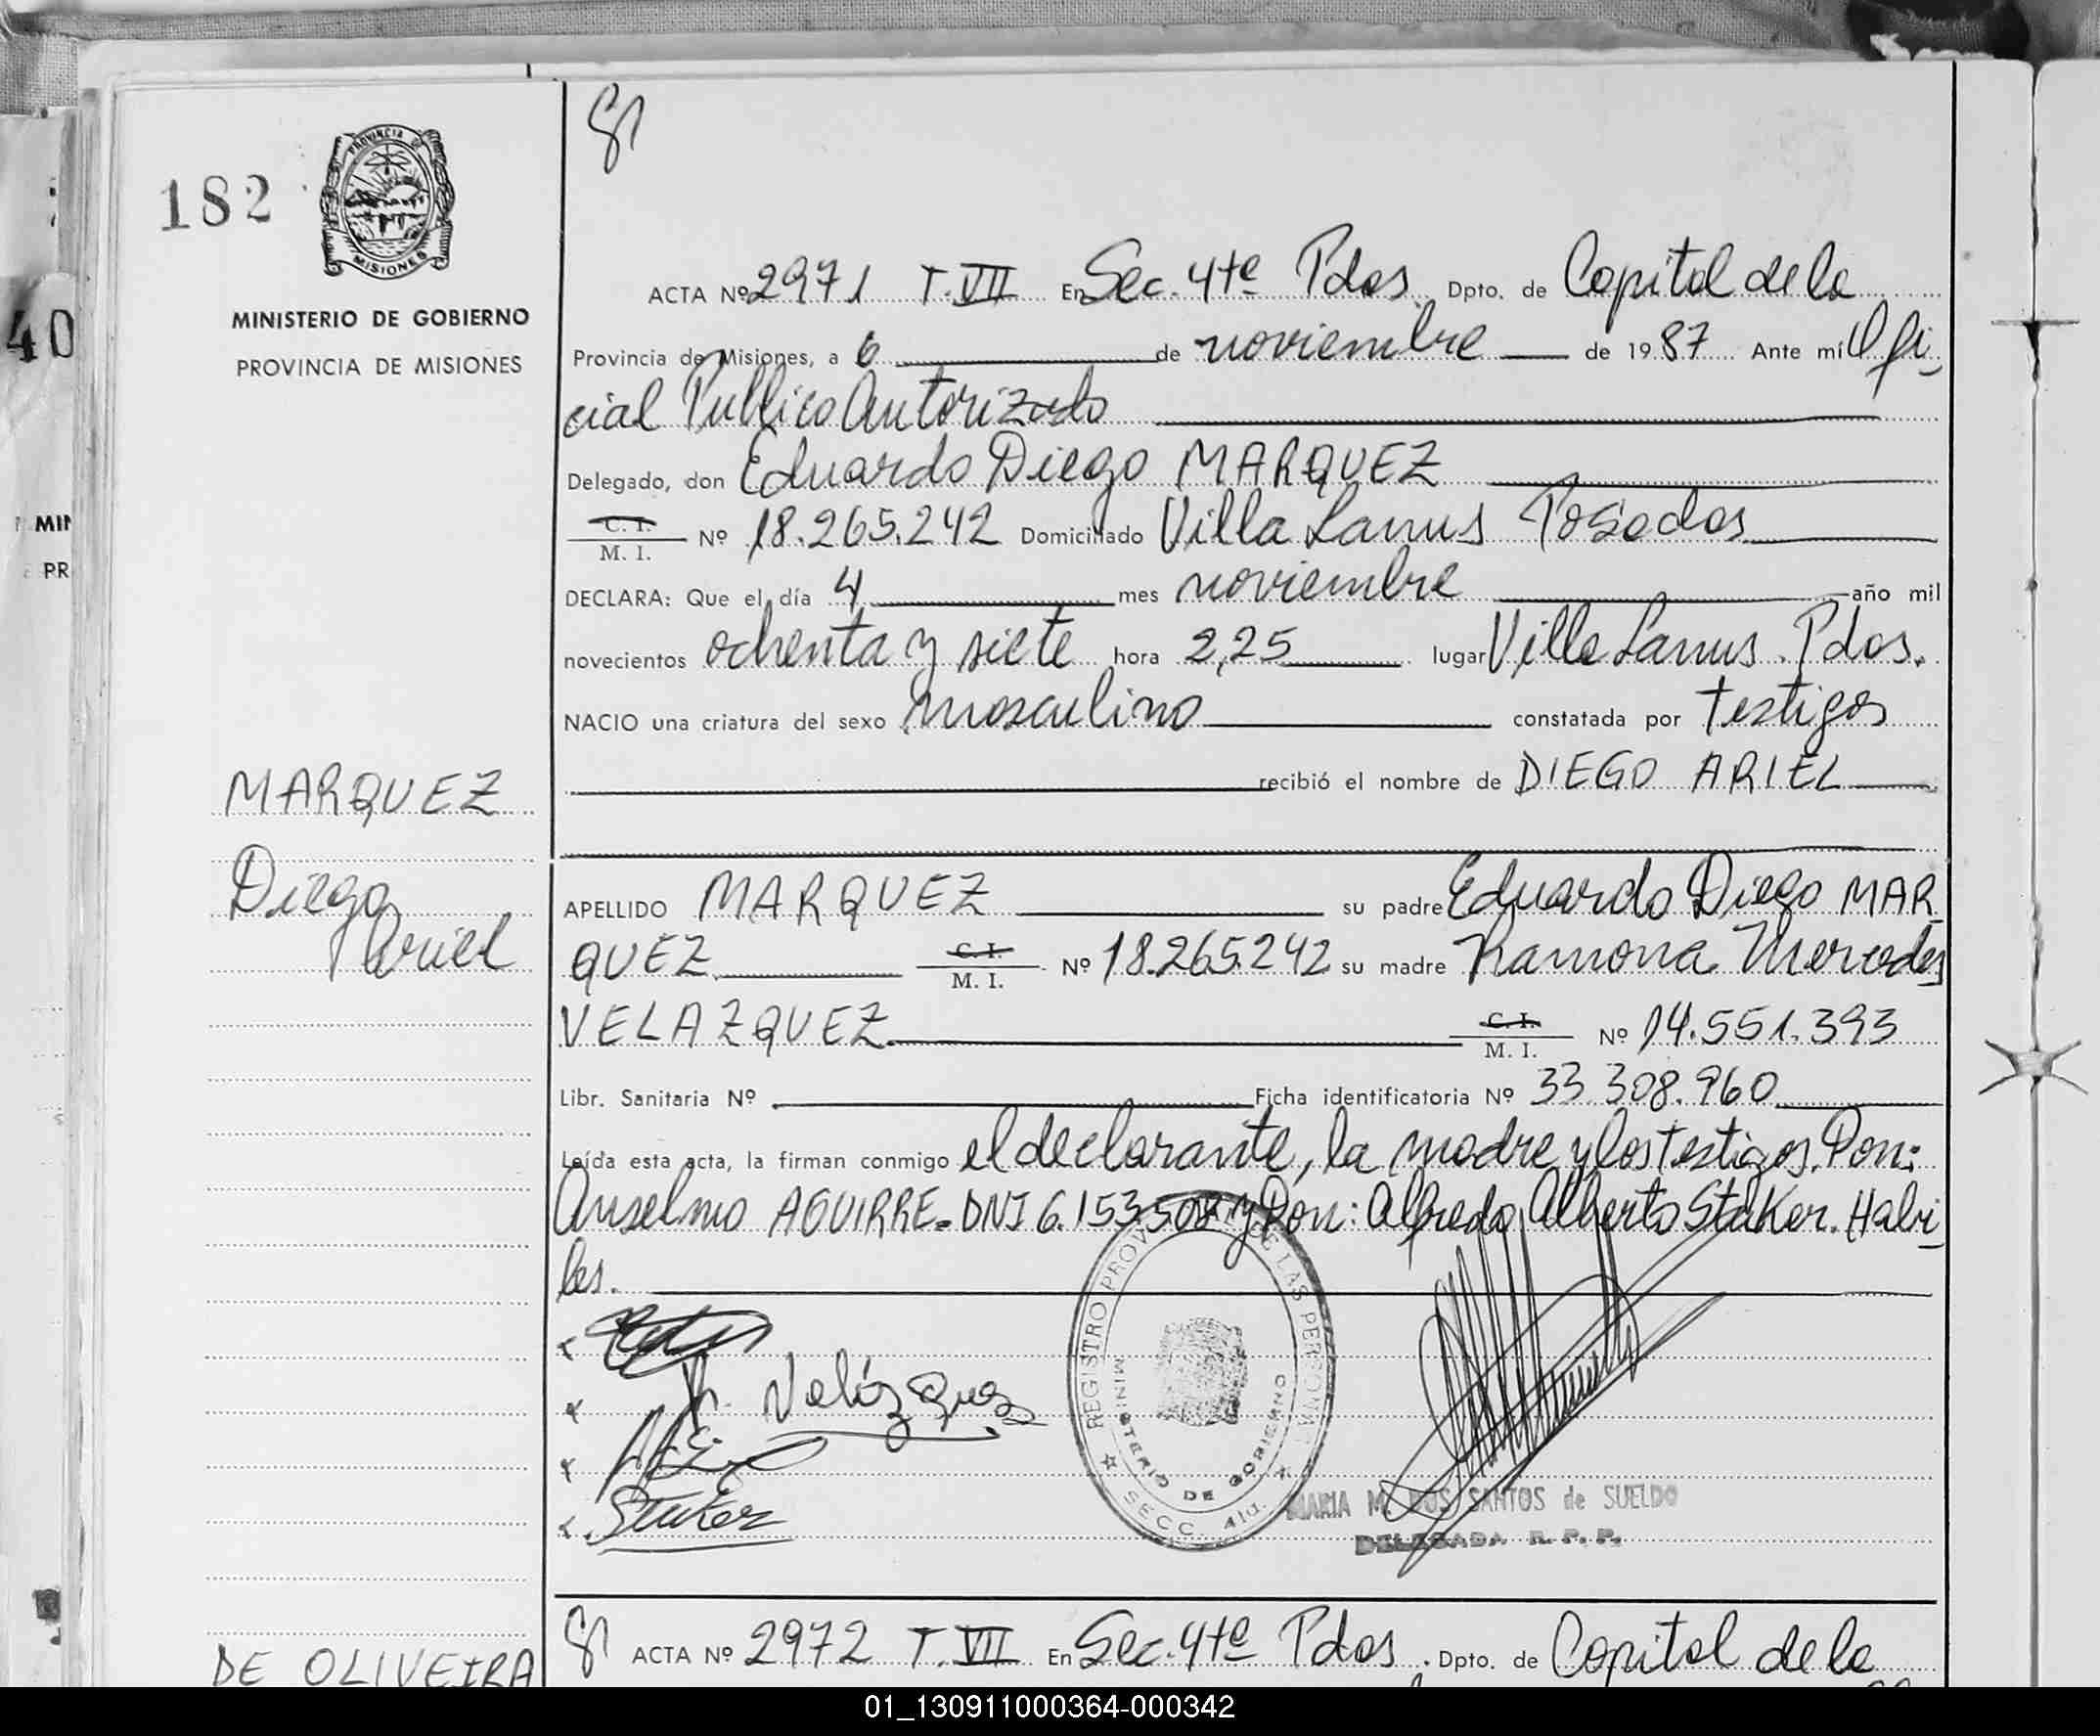 182
PROVINCIA DE
MISIONES
MINISTERIO DE GOBIERNO
PROVINCIA DE MISIONES
40
MIN
PR
ACTA Nº 2971 T.VII En Sec. 4ta Pdas. Dpto. de Capital de la
Provincia de Misiones, a 6 de noviembre de 1987 Ante mí Ofi-
cial Publico Autorizado
Delegado, don Eduardo Diego MARQUEZ
C. I.
M. I. Nº 18.265.242 Domiciliado Villa Lanus Posadas
DECLARA: Que el día 4 mes noviembre año mil
novecientos ochenta y siete hora 2,25 lugar Villa Lanus. Pdas.
NACIO una criatura del sexo masculino constatada por testigos
recibió el nombre de DIEGO ARIEL
MARQUEZ
Diego
Ariel
APELLIDO MARQUEZ su padre Eduardo Diego MAR-
QUEZ C. I. M. I. Nº 18.265.242 su madre Ramona Mercedes
VELAZQUEZ C. I. M. I. Nº 14.551.393
Libr. Sanitaria Nº Ficha identificatoria Nº 33.308.960
Leída esta acta, la firman conmigo el declarante, la madre y los testigos. Don:
Anselmo AGUIRRE. DNI 6.153.508 y Don: Alfredo Alberto Staker. Habi-
les.
R. Velázquez
Staker
REGISTRO PROV DE LAS PERSONAS
MINISTERIO DE GOBIERNO
SECC. 4ta.
MARIA M. DOS SANTOS de SUELDO
DELEGADA R. P. P.
DE OLIVEIRA
ACTA Nº 2972 T. VII En Sec. 4ta Pdas. Dpto. de Capital de la
01_130911000364-000342